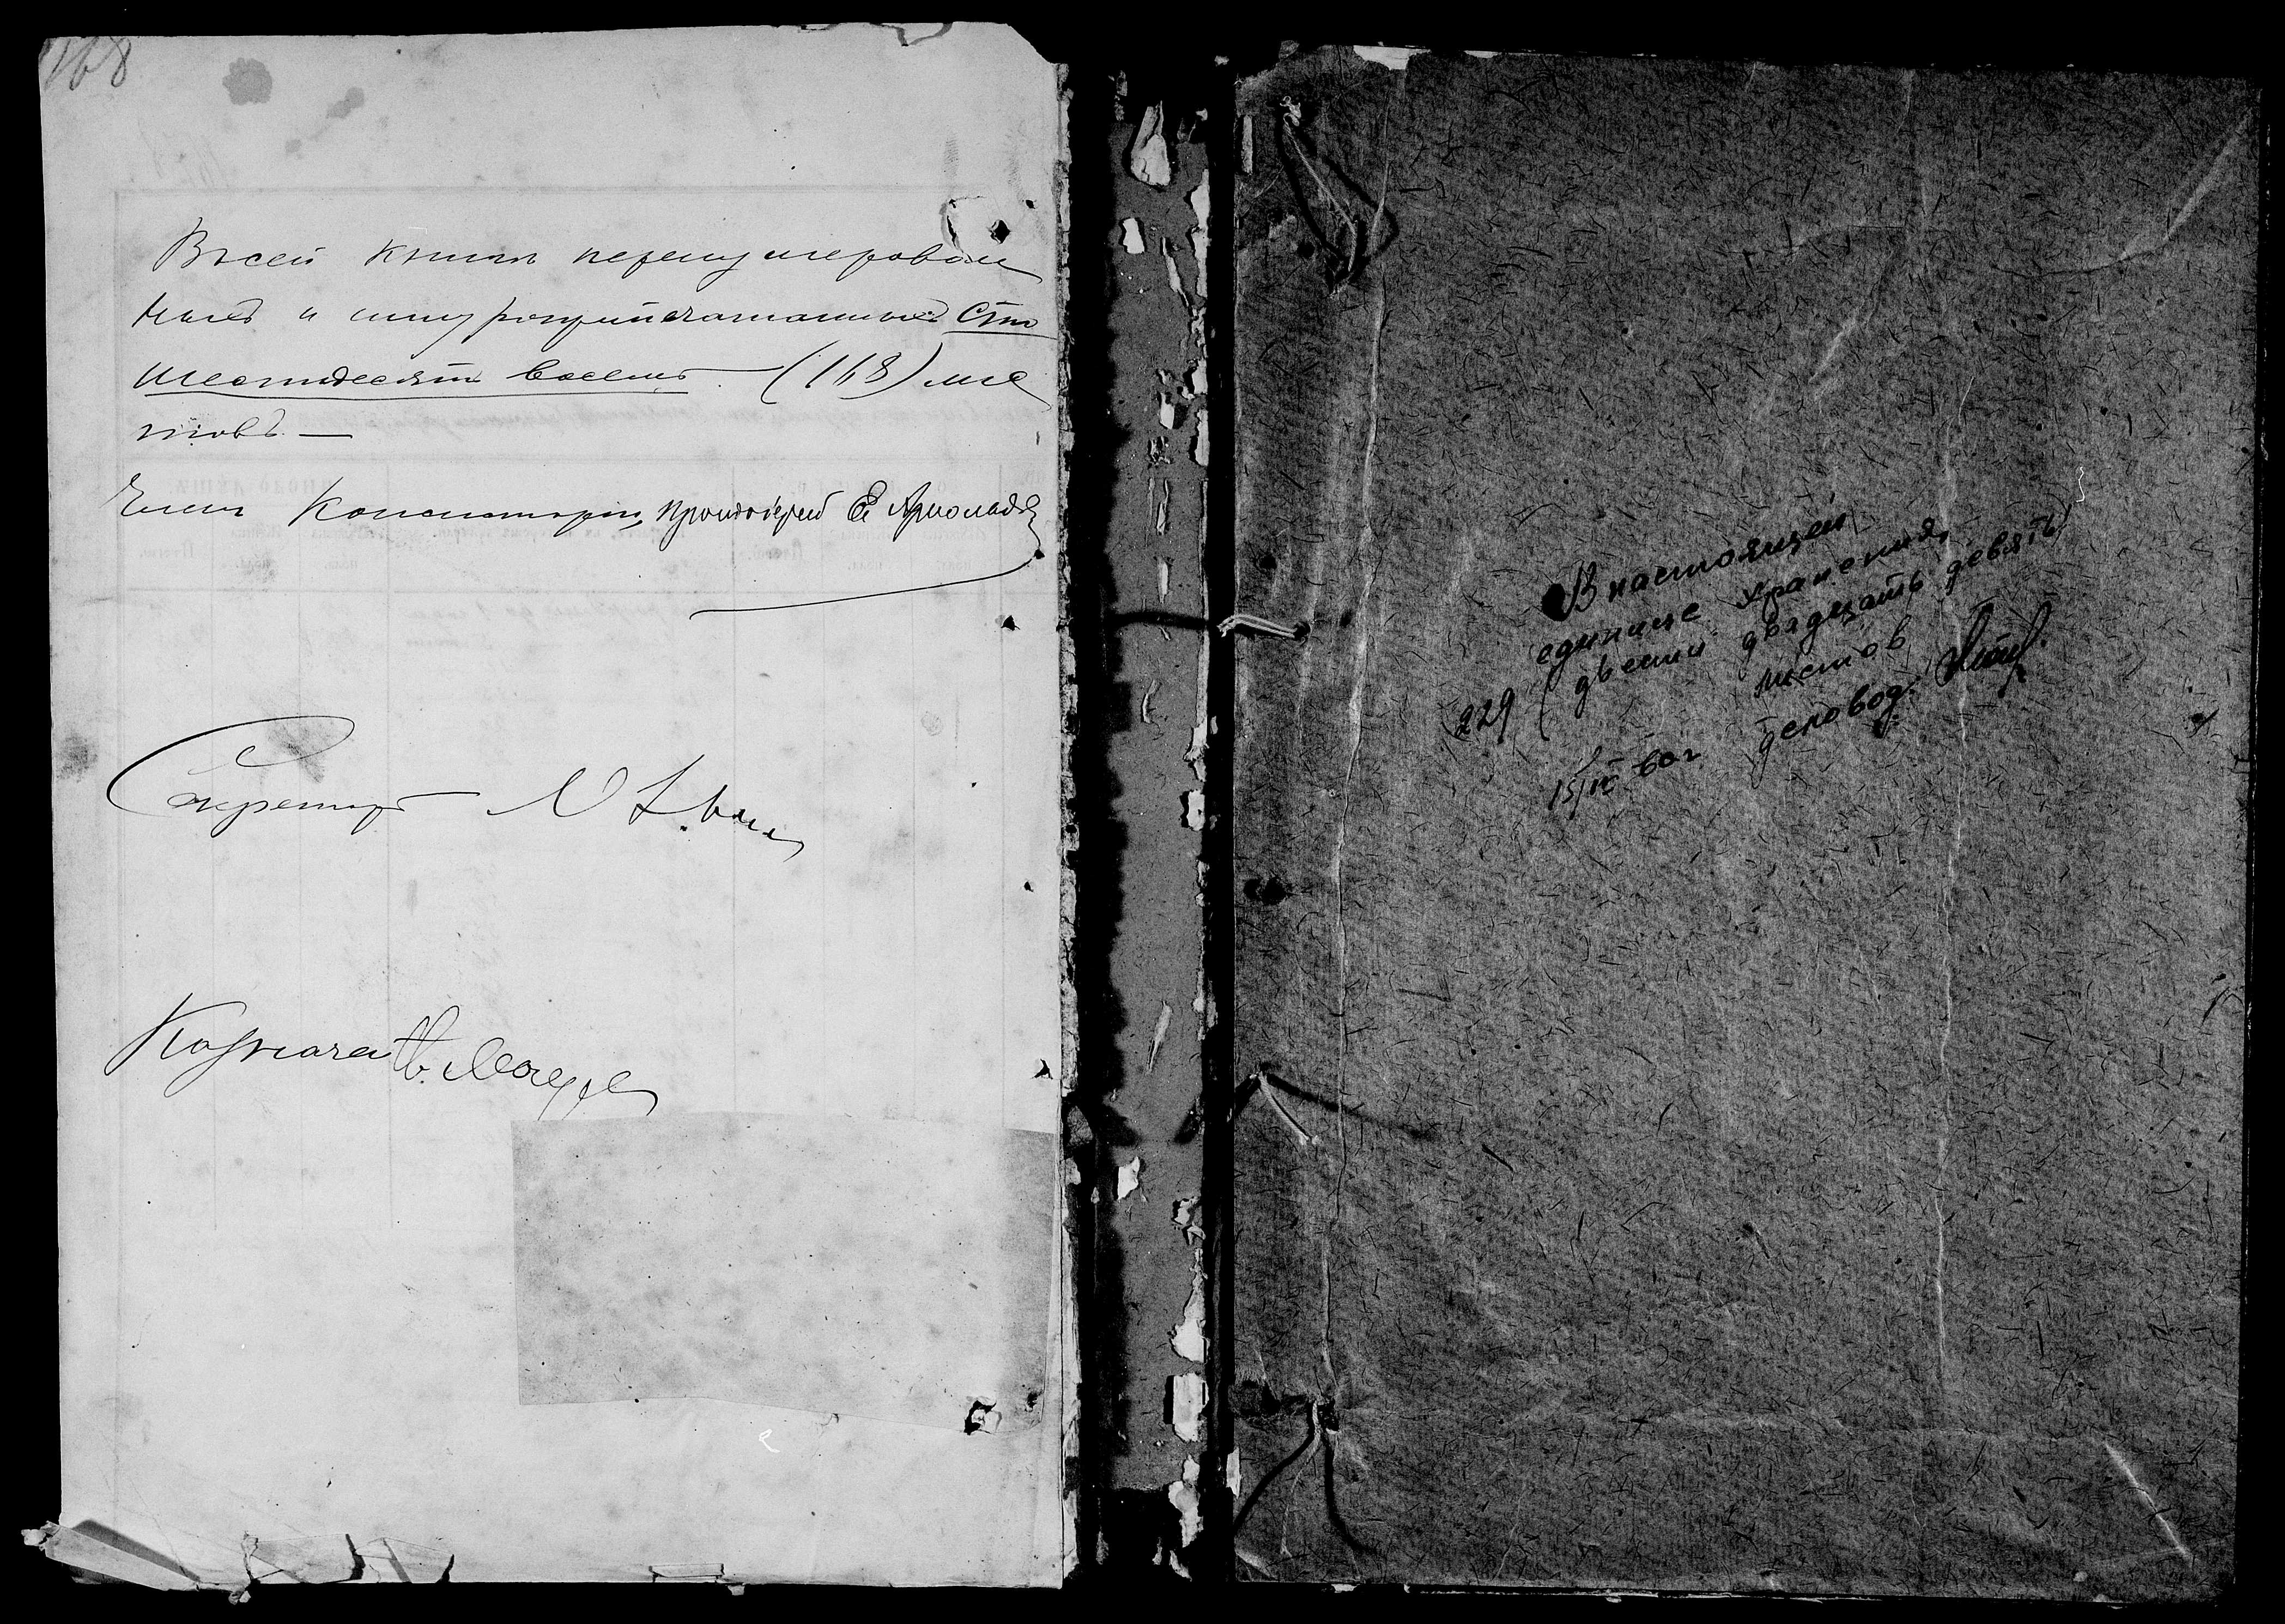 168
Въ сей книгѣ перенумерован
ныхъ и шнуроприпечатанныхъ Сто
шестьдесятъ восемь (168) лис
товъ. —
Членъ Консисторіи, протоіерей Е.
Секретарь
Казначей
В настоящей
единице хранения
229 (двести двадцать девять)
листов
15/IV 60 г деловод.